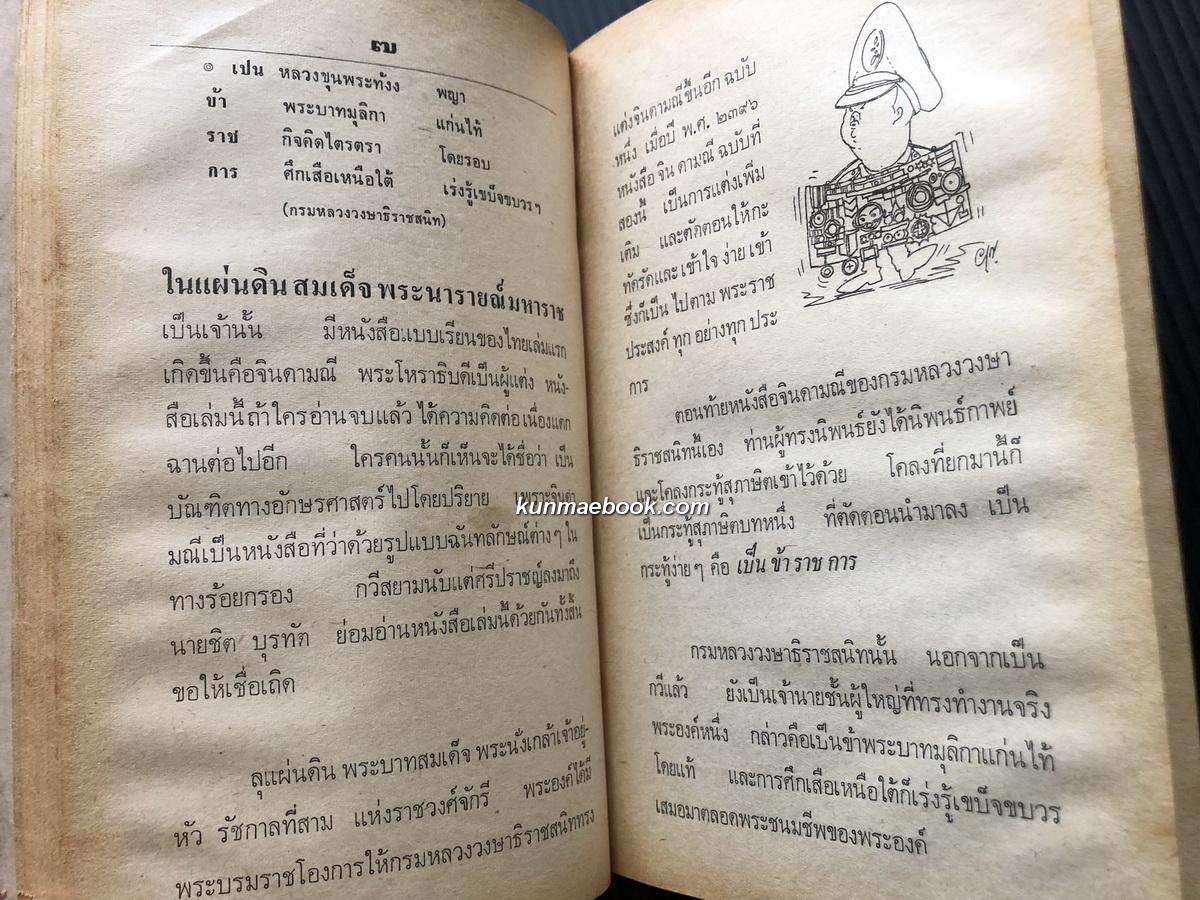 ๗
๏ เปน หลวงขุนพระทั้งง พญา
ข้า พระบาทมุลิกา แก่นไท้
ราช กิจคิดไตรตรา โดยรอบ
การ ศึกเสือเหนือใต้ เร่งรู้เขบ็จขบวร ฯ
(กรมหลวงวงษาธิราชสนิท)
ในแผ่นดิน สมเด็จ พระนารายณ์มหาราช
เป็นเจ้านั้น มีหนังสือแบบเรียนของไทยเล่มแรก
เกิดขึ้นคือจินดามณี พระโหราธิบดีเป็นผู้แต่ง หนัง-
สือเล่มนี้ถ้าใครอ่านจบแล้ว ได้ความคิดต่อเนื่องแตก
ฉานต่อไปอีก ใครคนนั้นก็เห็นจะได้ชื่อว่า เป็น
บัณฑิตทางอักษรศาสตร์ไปโดยปริยาย เพราะจินดา
มณีเป็นหนังสือที่ว่าด้วยรูปแบบฉันทลักษณ์ต่างๆ ใน
ทางร้อยกรอง กวีสยามนับแต่ศรีปราชญ์ลงมาถึง
นายชิต บุรทัต ย่อมอ่านหนังสือเล่มนี้ด้วยกันทั้งสิ้น
ขอให้เชื่อเถิด
ลุแผ่นดิน พระบาทสมเด็จ พระนั่งเกล้าเจ้าอยู่-
หัว รัชกาลที่สาม แห่งราชวงศ์จักรี พระองค์ได้มี
พระบรมราชโองการให้กรมหลวงวงษาธิราชสนิททรง
แต่งจินดามณีขึ้นอีก ฉบับ
หนึ่ง เมื่อปี พ.ศ. ๒๓๙๖
หนังสือ จิน ดามณี ฉบับที่
สองนี้ เป็นการแต่งเพิ่ม
เติม และตัดตอนให้กะ
ทัดรัดและ เข้าใจ ง่าย เข้า
ซึ่งก็เป็น ไปตาม พระราช
ประสงค์ ทุก อย่างทุก ประ
การ
ตอนท้ายหนังสือจินดามณีของกรมหลวงวงษา
ธิราชสนิทนี้เอง ท่านผู้ทรงนิพนธ์ยังได้นิพนธ์กาพย์
และโคลงกระทู้สุภาษิตเข้าไว้ด้วย โคลงที่ยกมานี้ก็
เป็นกระทู้สุภาษิตบทหนึ่ง ที่ตัดตอนนำมาลง เป็น
กระทู้ง่าย ๆ คือ เป็น ข้า ราช การ
กรมหลวงวงษาธิราชสนิทนั้น นอกจากเป็น
กวีแล้ว ยังเป็นเจ้านายชั้นผู้ใหญ่ที่ทรงทำงานจริง
พระองค์หนึ่ง กล่าวคือเป็นข้าพระบาทมุลิกาแก่นไท้
โดยแท้ และการศึกเสือเหนือใต้ก็เร่งรู้เขบ็จขบวร
เสมอมาตลอดพระชนมชีพของพระองค์
kunmaebook.com